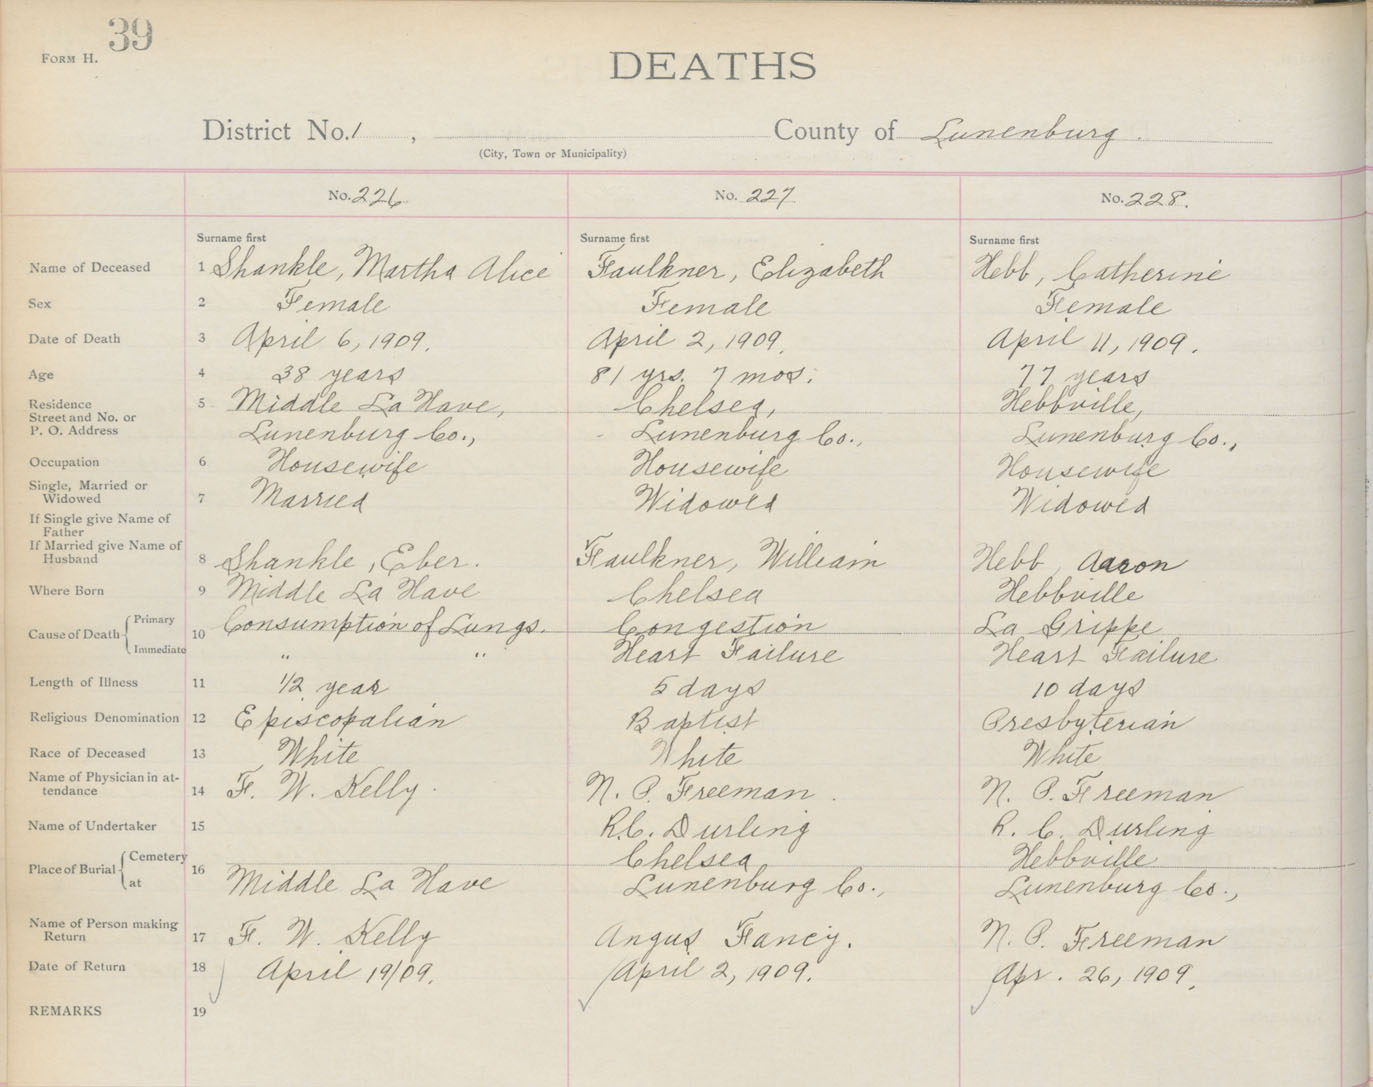 39
FORM H.
DEATHS
District No. 1 , County of Lunenburg.
(City, Town or Municipality)
No. 226 No. 227 No. 228.
Surname first Surname first Surname first
Name of Deceased 1 Shankle, Martha Alice Faulkner, Elizabeth Hebb, Catherine
Sex 2 Female Female Female
Date of Death 3 April 6, 1909. April 2, 1909. April 11, 1909.
Age 4 38 years 81 yrs. 7 mos. 77 years
Residence 5 Middle La Have, Chelsea, Hebbville,
Street and No. or
P. O. Address Lunenburg Co., Lunenburg Co., Lunenburg Co.,
Occupation 6 Housewife Housewife Housewife
Single, Married or
Widowed 7 Married Widowed Widowed
If Single give Name of
Father
If Married give Name of
Husband 8 Shankle, Eber. Faulkner, William Hebb, Aaron
Where Born 9 Middle La Have Chelsea Hebbville
Cause of Death Primary 10 Consumption of Lungs. Congestion La Grippe
Immediate " " Heart Failure Heart Failure
Length of Illness 11 1/2 year 5 days 10 days
Religious Denomination 12 Episcopalian Baptist Presbyterian
Race of Deceased 13 White White White
Name of Physician in at-
tendance 14 F. W. Kelly. N. P. Freeman. N. P. Freeman
Name of Undertaker 15 R.C. Durling R. C. Durling
Place of Burial Cemetery 16 Chelsea Hebbville
at Middle La Have Lunenburg Co., Lunenburg Co.,
Name of Person making
Return 17 F. W. Kelly Angus Fancy. N. P. Freeman
Date of Return 18 April 19/09. April 2, 1909. Apr. 26, 1909.
REMARKS 19